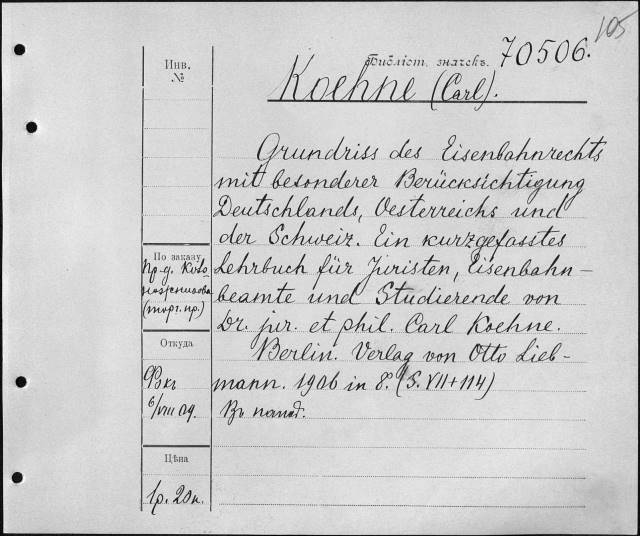 105
Библіот. значекъ. 70506.
Инв.
№
Koehne (Carl).
Grundriss des Eisenbahnrechts
mit besonderer Berücksichtigung
Deutschlands, Oesterreichs und
der Schweiz. Ein kurzgefasstes
Lehrbuch für Juristen, Eisenbahn-
beamte und Studierende von
Dr. jur. et phil. Carl Koehne.
Berlin. Verlag von Otto Lieb-
mann. 1906 in 8. (S. VII+114)
Въ
По заказу
пр-д.
(торг. пр.)
Откуда
Фокъ
6/VIII 09.
Цѣна
1р. 20к.